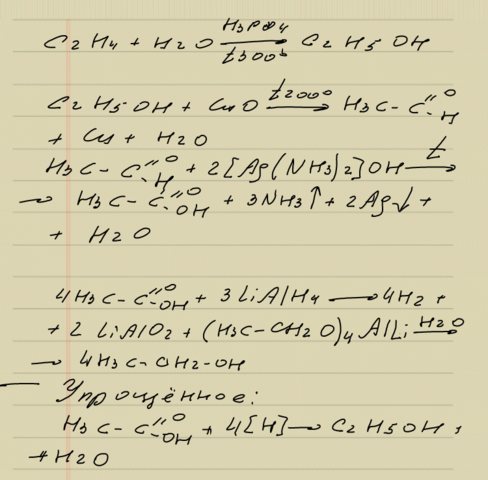 C2H4 + H2O H3PO4 t300° → C2H5OH
C2H5OH + CuO t200° → H3C-C=O-H
+ Cu + H2O
H3C-C=O-H + 2[Ag(NH3)2]OH t →
→ H3C-C=O-OH + 3NH3↑ + 2Ag↓ +
+ H2O
4H3C-C=O-OH + 3LiAlH4 → 4H2 +
+ 2LiAlO2 + (H3C-CH2O)4AlLi H2O →
→ 4H3C-CH2-OH
Упрощённое:
H3C-C=O-OH + 4[H] → C2H5OH +
+ H2O